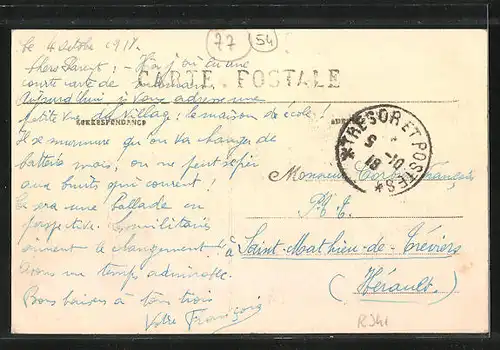 77 54
le 4 octobre 1918.
Chers Parents : - Hier j'ai eu une
courte carte de
CARTE POSTALE
Aujourd'hui je vous adresse une
petite vue du village : la maison de école !
CORRESPONDANCE
Il se murmure qu'on va changer de
batterie mais, on ne peut se fier
aux bruits qui courent !
Ce sera une ballade en
perspective. Les militaires
aiment le changement !
Avons un temps admirable.
Bons baisers à tous trois
Votre François
TRESOR ET POSTES
5 -10
18
Monsieur François
P. T.
à Saint-Mathieu-de-Tréviers
(Hérault)